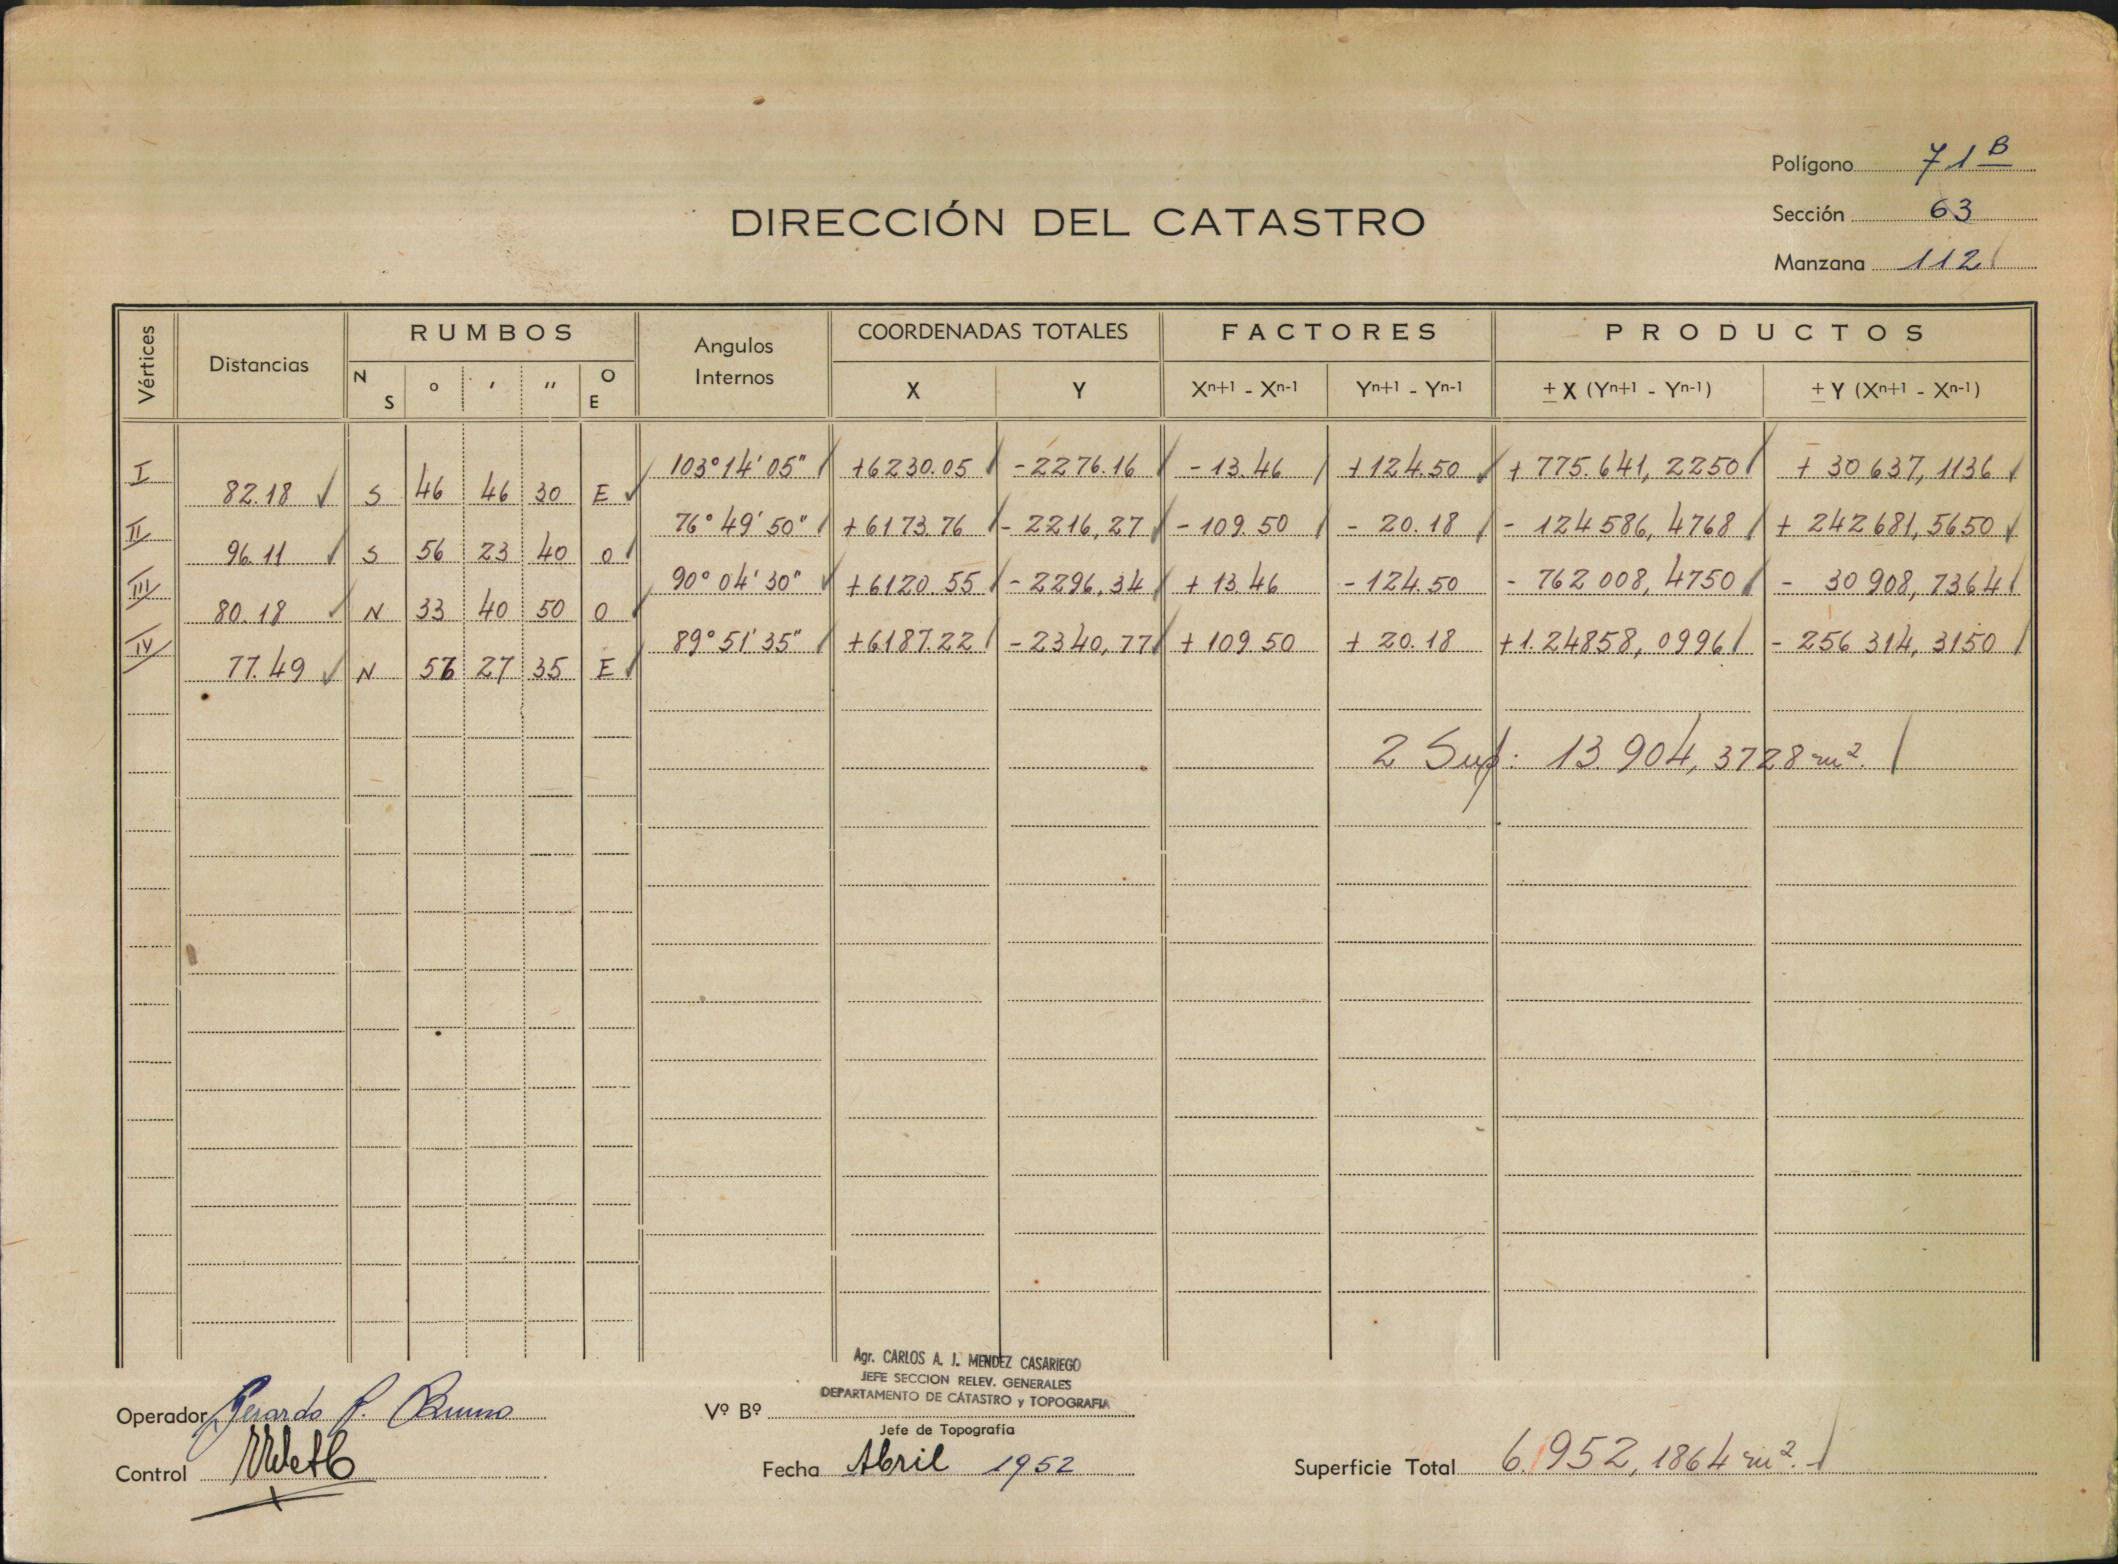 Polígono 71 B
Sección 63
Manzana 112
DIRECCIÓN DEL CATASTRO
Vértices Distancias RUMBOS Angulos Internos COORDENADAS TOTALES FACTORES PRODUCTOS
N S ° ' " O E X Y Xn+1 - Xn-1 Yn+1 - Yn-1 ± X (Yn+1 - Yn-1) ± Y (Xn+1 - Xn-1)
I 103°14'05" +6230.05 -2276.16 -13.46 +124.50 +775.641,2250 +30637,1136
82.18 S 46 46 30 E
II 76°49'50" +6173.76 -2216,27 -109.50 -20.18 -124586,4768 +242681,5650
96.11 S 56 23 40 O
III 90°04'30" +6120.55 -2296,34 +13.46 -124.50 -762008,4750 -30908,7364
80.18 N 33 40 50 O
IV 89°51'35" +6187.22 -2340,77 +109.50 +20.18 +1.24858,0996 -256314,3150
77.49 N 56 27 35 E
2 Sup: 13.904,3728 m².
Agr. CARLOS A. J. MENDEZ CASARIEGO
JEFE SECCION RELEV. GENERALES
DEPARTAMENTO DE CATASTRO y TOPOGRAFIA
Operador Gerardo P. Bruno
Vº Bº
Jefe de Topografía
Control
Fecha Abril 1952
Superficie Total 6.952,1864 m².